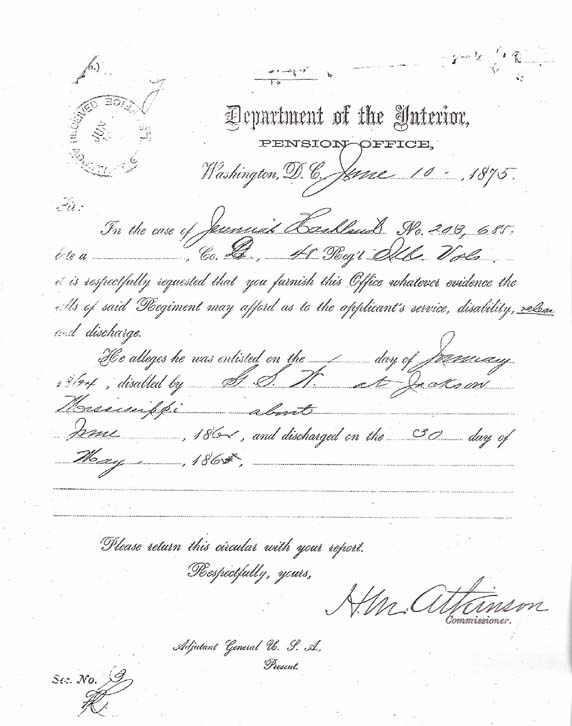 RECEIVED
JUN
Department of the Interior,
PENSION OFFICE,
Washington, D.C. June 10, 1875.
Sir:
In the case of Jeremiah No. 208,685
late a , Co. B, 48 Reg't Ills. Vols.
it is respectfully requested that you furnish this Office whatever evidence the
rolls of said Regiment may afford as to the applicant's service, disability,
and discharge.
He alleges he was enlisted on the 1 day of January
1864, disabled by G. S. W. at Jackson
Mississippi about
June , 186 , and discharged on the 30 day of
May , 186 ,
Please return this circular with your report.
Respectfully, yours,
H.M. Atkinson
Commissioner.
Adjutant General U. S. A.,
Present.
Sec. No. 3